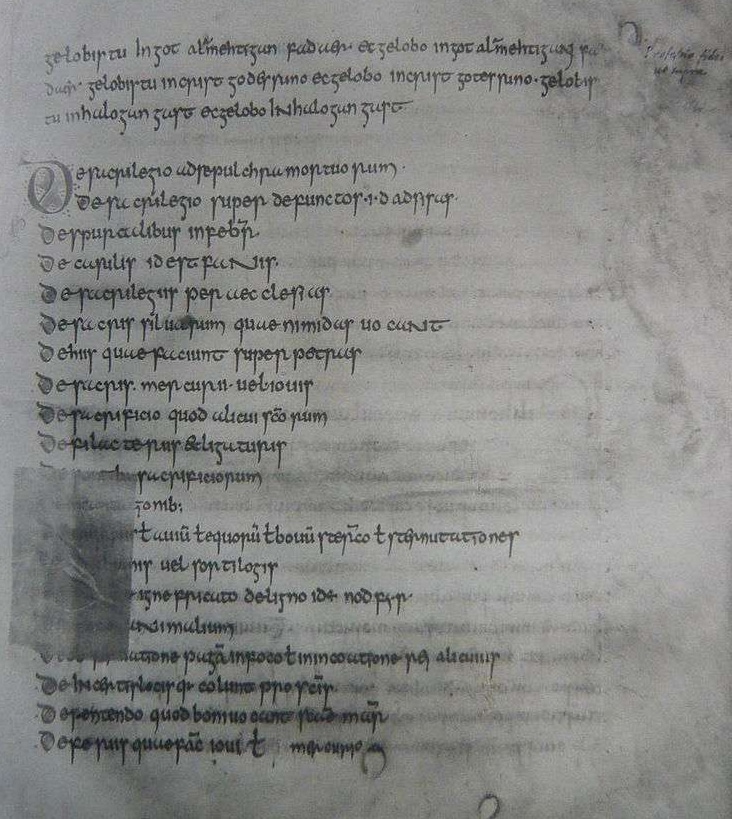 gelobistu Ingot alamehtigan fadaer ec gelobo ingot alamehtigan fa
daer gelobistu incrist godes suno ec gelobo incrist gotes suno. gelobis
tu inhalogan gast ec gelobo INhalogan gast
De sacrilegio ad sepulchra mortuorum.
De sacrilegio super defunctos .i. dadsisas.
De spurcalibus in febr̄.
De casulis id est faNis.
De sacrilegiis per aecclesias
De sacris siluarum quae nimidas uocaNt
De hiis quae faciunt super petras
De sacris. mercurii. uel iouis
De sacrificio quod alicui sc̄orum
De filacteriis & ligaturis
sacrificiorum
auiū ł equorū ł bouū sterco ł sternutationes
uel sortilogis
igne fricato de ligno id ē nodfyr.
aNimalium
pagā in foco ł in incoatione rei alicuius
De Incertis locis q̄ colunt pro sc̄is
De petendo quod boni uocant scae mar̄
De feriis quae fac̄ ioui ł mercurio